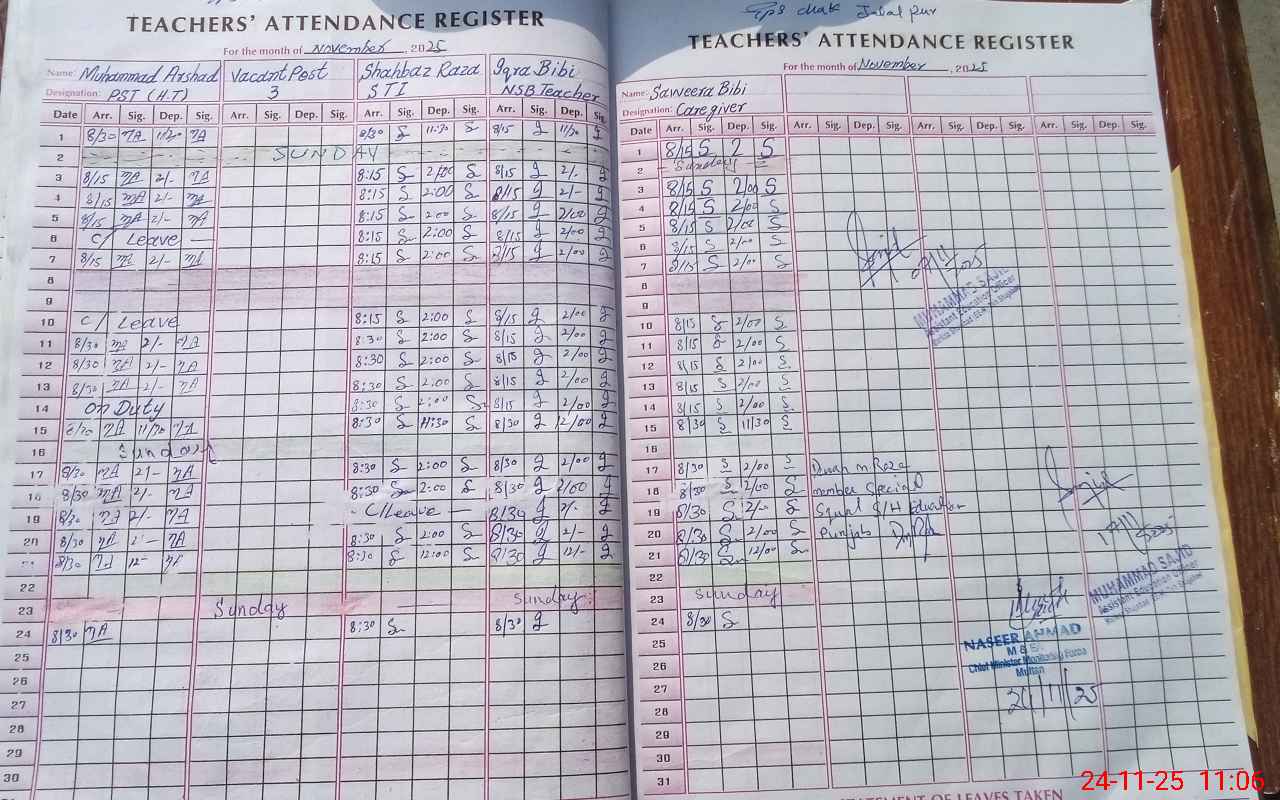 TEACHERS' ATTENDANCE REGISTER
For the month of November, 2025
Name: Muhammad Arshad Vacant Post Shahbaz Raza Iqra Bibi
Designation: PST (H.T) 3 STI NSB Teacher
Date Arr. Sig. Dep. Sig. Arr. Sig. Dep. Sig. Arr. Sig. Dep. Sig. Arr. Sig. Dep. Sig.
1 8/30 MA 11/30 MA 8/30 S 11:30 S 8/15 I 11/30 I
2 SUNDAY
3 8/15 MA 2/- MA 8:15 S 2:00 S 8/15 I 2/- I
4 8/15 MA 2/- MA 8:15 S 2:00 S 8/15 I 2/- I
5 8/15 MA 2/- MA 8:15 S 2:00 S 8/15 I 2/00 I
6 C/ Leave — 8:15 S 2:00 S 8/15 I 2/00 I
7 8/15 MA 2/- MA 8:15 S 2:00 S 8/15 I 2/00 I
8
9
10 C/ Leave 8:15 S 2:00 S 8/15 I 2/00 I
11 8/30 MA 2/- MA 8:30 S 2:00 S 8/15 I 2/00 I
12 8/30 MA 2/- MA 8:30 S 2:00 S 8/15 I 2/00 I
13 8/30 MA 2/- MA 8:30 S 2:00 S 8/15 I 2/00 I
14 On Duty 8:30 S 2:00 S 8/15 I 2/00 I
15 8/30 MA 11/30 MA 8:30 S 11:30 S 8/30 I 12/00 I
16 Sunday
17 8/30 MA 2/- MA 8:30 S 2:00 S 8/30 I 2/00 I
18 8/30 MA 2/- MA 8:30 S 2:00 S 8/30 I 2/00 I
19 8/30 MA 2/- MA - C/Leave — 8/30 I 2/- I
20 8/30 MA 2/- MA 8:30 S 2:00 S 8/30 I 2/- I
8/30 MA 12- MA 8:30 S 12:00 S 8/30 I 12/- I
22
23 Sunday Sunday
24 8/30 MA 8:30 S 8/30 I
25
26
27
28
29
30
GPS chak Jalal pur
TEACHERS' ATTENDANCE REGISTER
For the month of November, 2025
Name: Saweera Bibi
Designation: Caregiver
Date Arr. Sig. Dep. Sig. Arr. Sig. Dep. Sig. Arr. Sig. Dep. Sig. Arr. Sig. Dep. Sig.
1 8/15 S 2 S
2 - Sunday -
3 8/15 S 2/00 S
4 8/15 S 2/00 S
5 8/15 S 2/00 S
6 8/15 S 2/00 S
7 8/15 S 2/00 S
8
9
MUHAMMAD SAJID
Assistant Education Officer
10 8/15 S 2/00 S
11 8/15 S 2/00 S
12 8/15 S 2/00 S
13 8/15 S 2/00 S
14 8/15 S 2/00 S
15 8/30 S 11/30 S
16
17 8/30 S 2/00 S
18 8/30 S 2/00 S member Special
19 8/30 S 2/- S Squad S/H Education
20 8/30 S 2/00 S Punjab
21 8/30 S 12/00 S
22
23 Sunday
24 8/30 S
19/11/2025
MUHAMMAD SAJID
Assistant Education Officer
25
26
27
28
29
30
31
NASEER AHMAD
M & E
Chief Minister Monitoring Force
Multan
STATEMENT OF LEAVES TAKEN
24-11-25 11:06